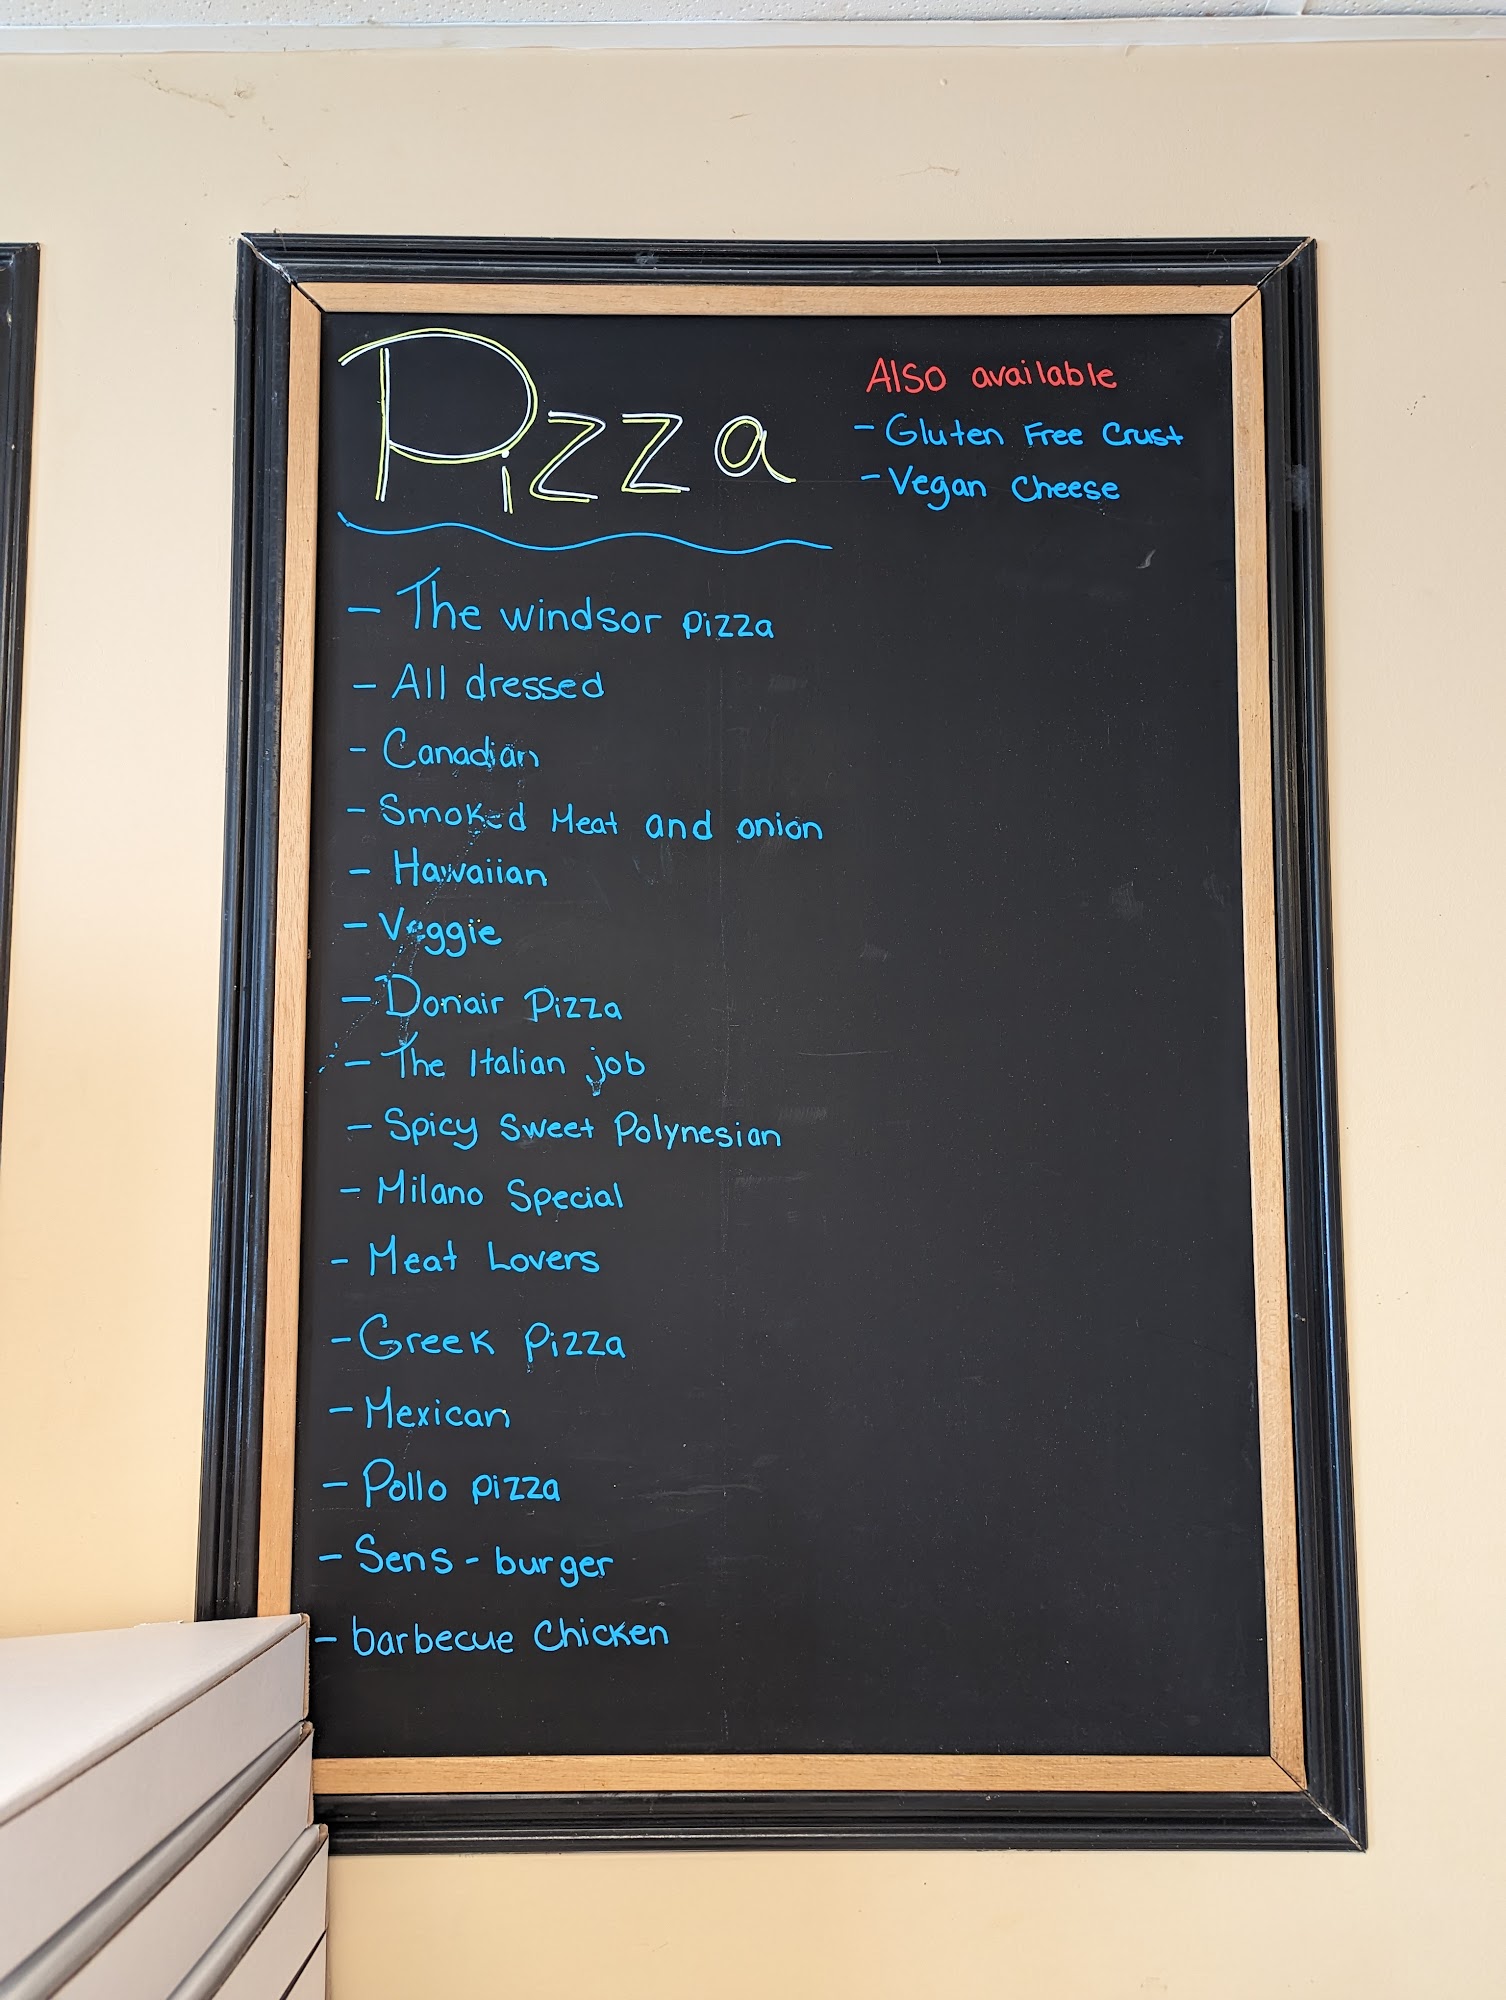 Pizza
Also available
- Gluten Free Crust
- Vegan Cheese
- The windsor pizza
- All dressed
- Canadian
- Smoked Meat and onion
- Hawaiian
- Veggie
- Donair Pizza
- The Italian job
- Spicy Sweet Polynesian
- Milano Special
- Meat Lovers
- Greek Pizza
- Mexican
- Pollo pizza
- Sens-burger
- barbecue Chicken